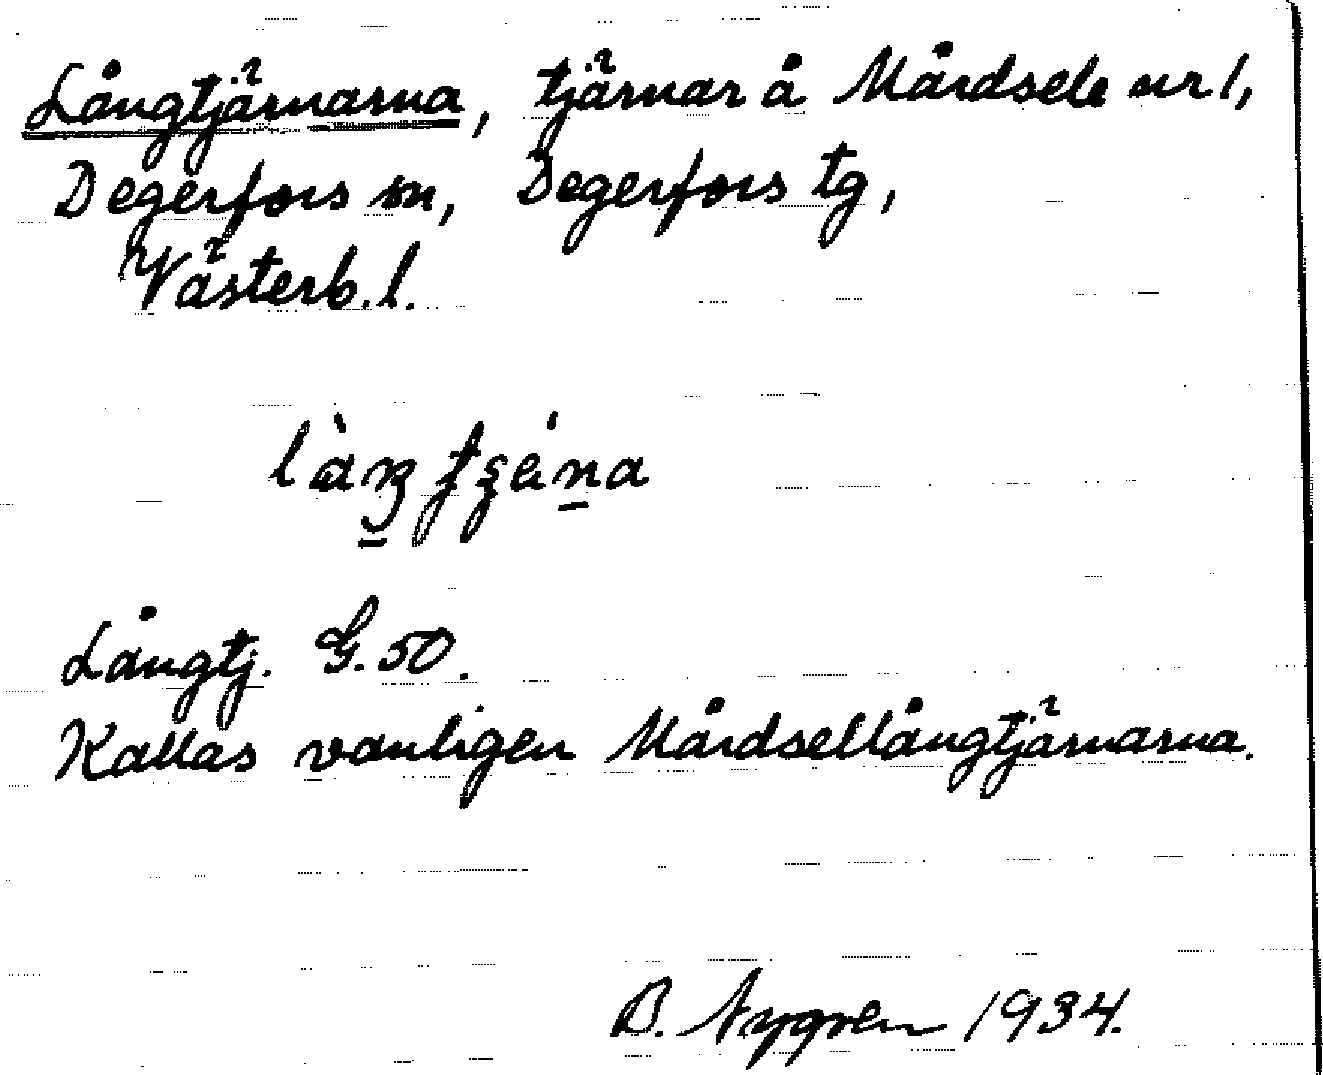 Långtjärnarna, tjärnar å Mårdsele nr 1,
Degerfors sn, Degerfors tg,
Västerb. l.
Långtj. G. 50.
Kallas vanligen Mårdsellångtjärnarna.
B. Nygren 1934.